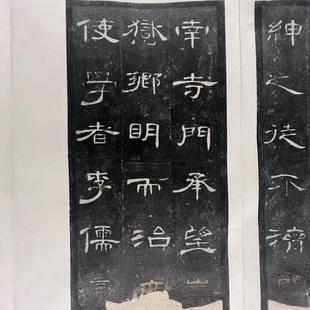 紳之徒不濟
南寺門承望
嶽鄉明而治
使學者李儒